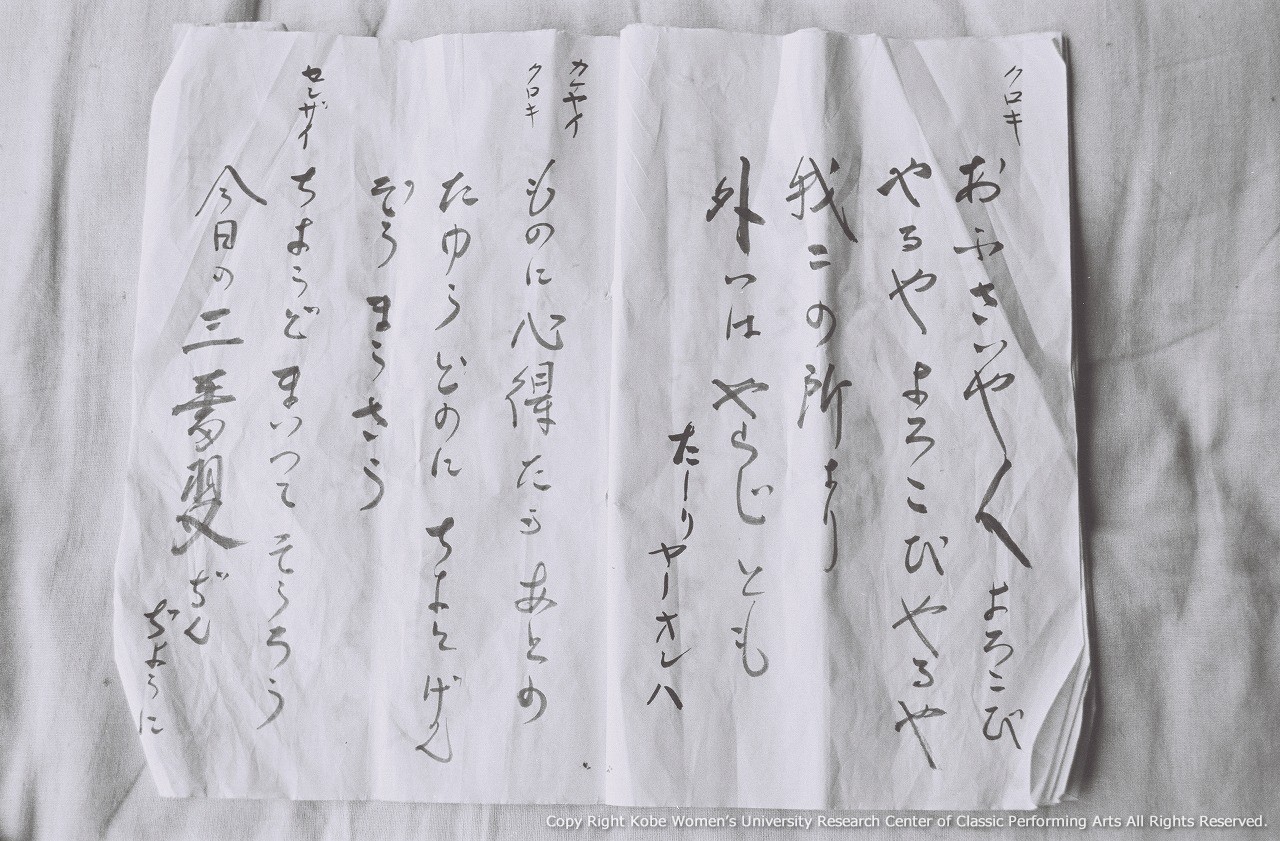 クロキ
おふさいや〱 よろこび
やるや よろこび やるや
我この所より
外へはやらじとも
たーり
ヤーオンハ
カケヤイ
クロキ
ものに心得たる あとの
たゆうどのに ちよとげん
ぞう まうさう
センザイ
ちようど まいつて そうろう
今日の三番叟 ぢん
ぢように
Copy Right Kobe Women's University Research Center of Classic Performing Arts All Rights Reserved.